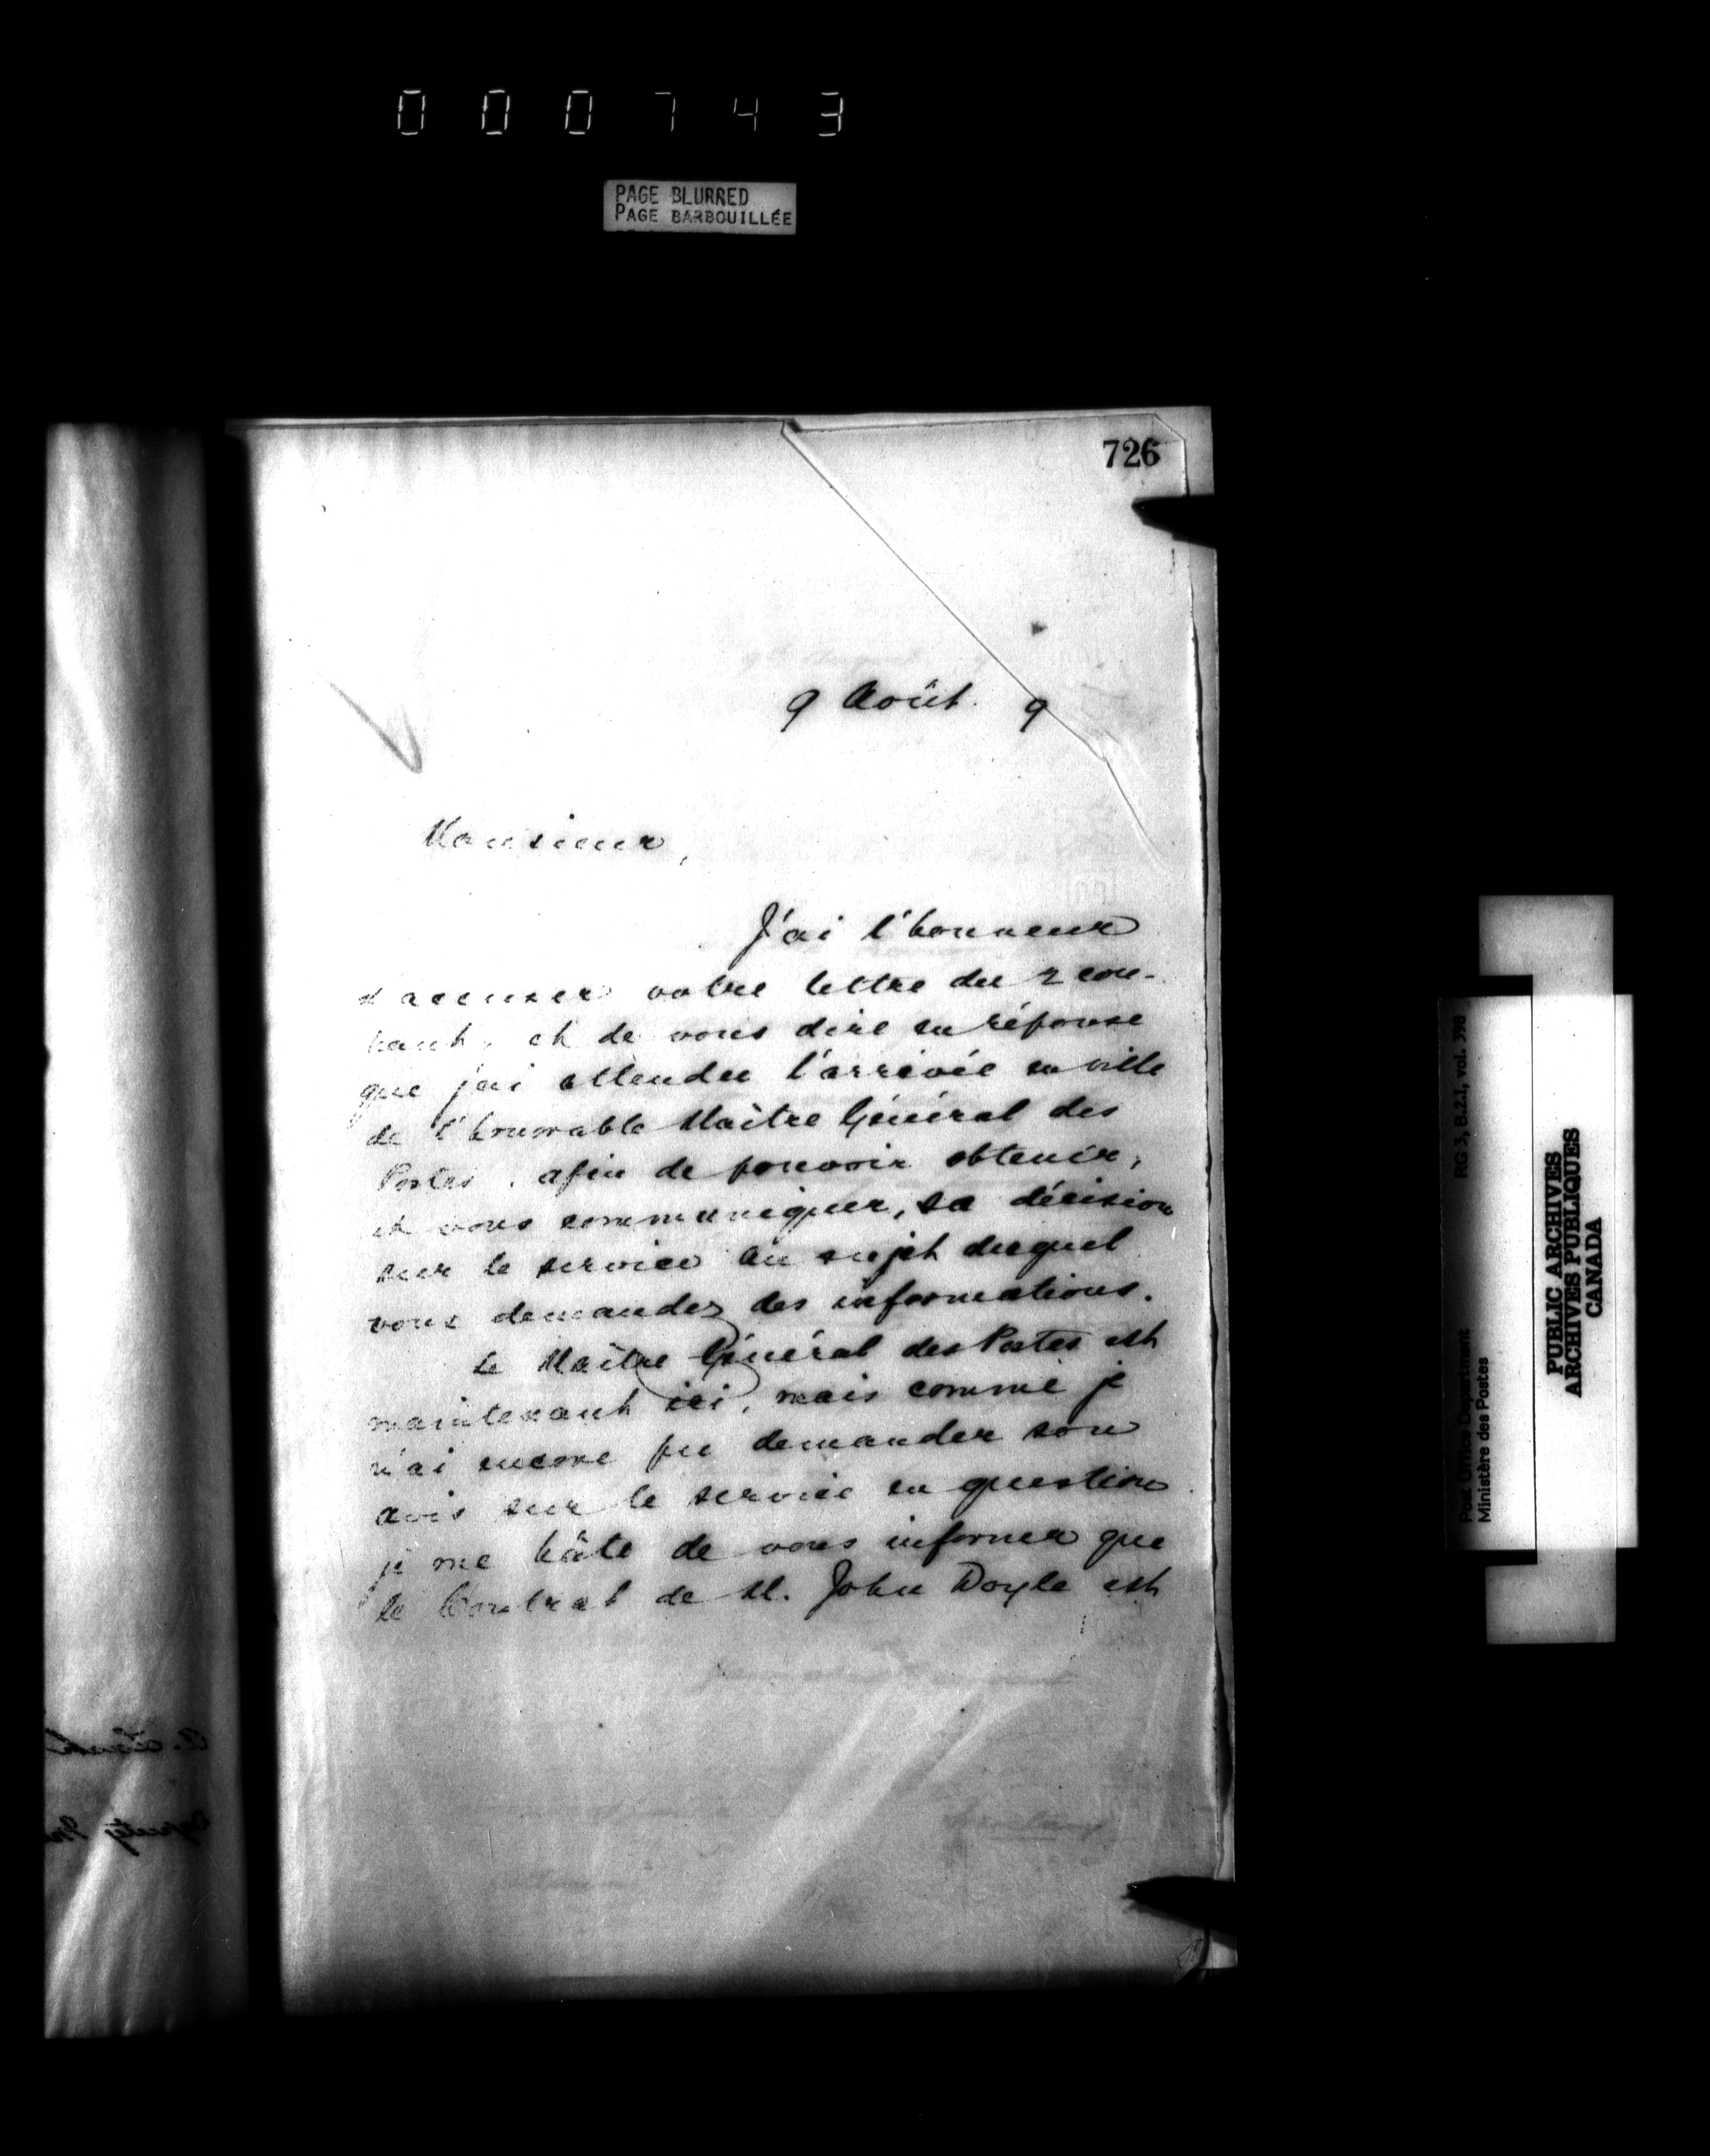 000743
PAGE BLURRED
PAGE BARBOUILLÉE
726
9 Août 9
Monsieur,
J'ai l'honneur
d'accuser votre lettre du 2 cou-
rant, et de vous dire en réponse
que j'ai attendu l'arrivée en ville
de l'honorable Maître Général des
Postes, afin de pouvoir obtenir,
et vous communiquer, sa décision
sur le service au sujet duquel
vous demandez des informations.
Le Maître Général des Postes est
maintenant ici, mais comme je
n'ai encore pu demander son
avis sur le service en question
je me hâte de vous informer que
le Contrat de M. John Doyle est
RG 3, B.2.1, vol. 398
Post Office Department
Ministère des Postes
PUBLIC ARCHIVES
ARCHIVES PUBLIQUES
CANADA